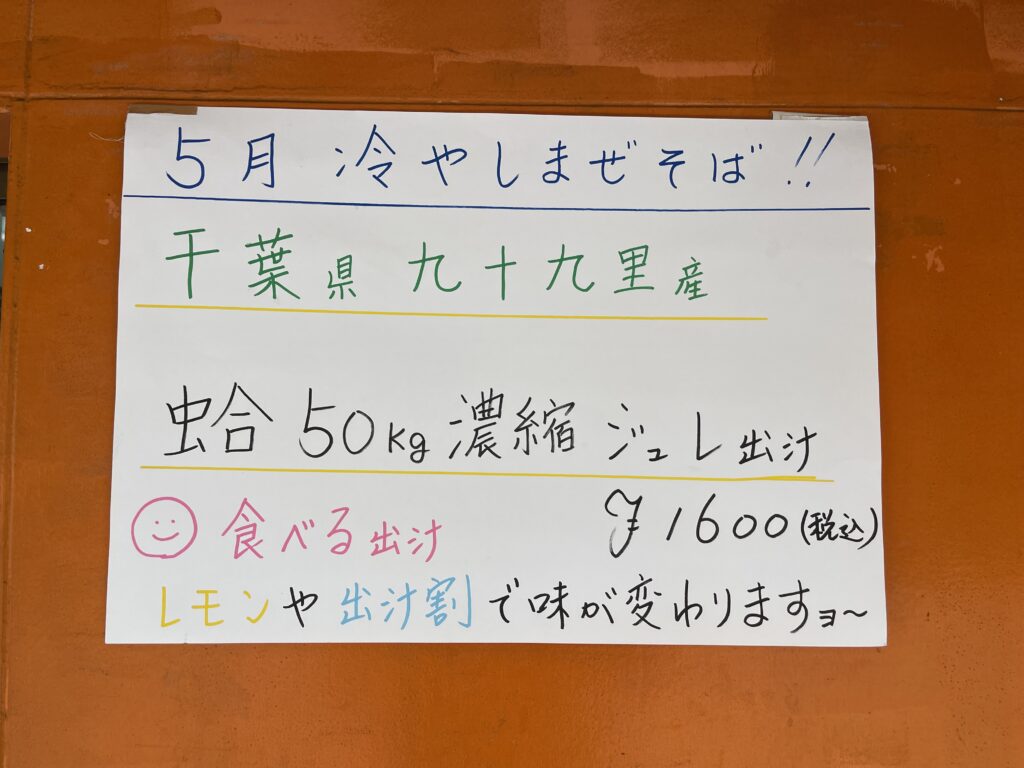 5月 冷やしまぜそば!!
千葉県 九十九里産
蛤 50kg 濃縮 ジュレ出汁
食べる出汁 ¥1600(税込)
レモンや出汁割で味が変わりますョ〜